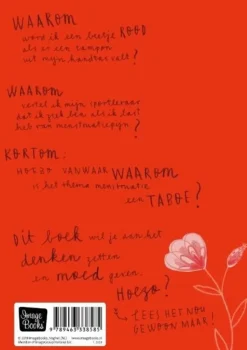 WAAROM
word ik een beetje ROOD
als er een tampon
uit mijn handtas valt?
WAAROM
vertel ik mijn sportleraar
dat ik ziek ben als ik last
heb van menstruatiepijn?
KORTOM:
HOEZO VANWAAR WAAROM
is het thema menstruatie
een TABOE?
Dit boek wil je aan het
denken zetten
en moed geven.
Hoezo?
LEES HET NOU
GEWOON MAAR!
Image
Books
9 789463 338585